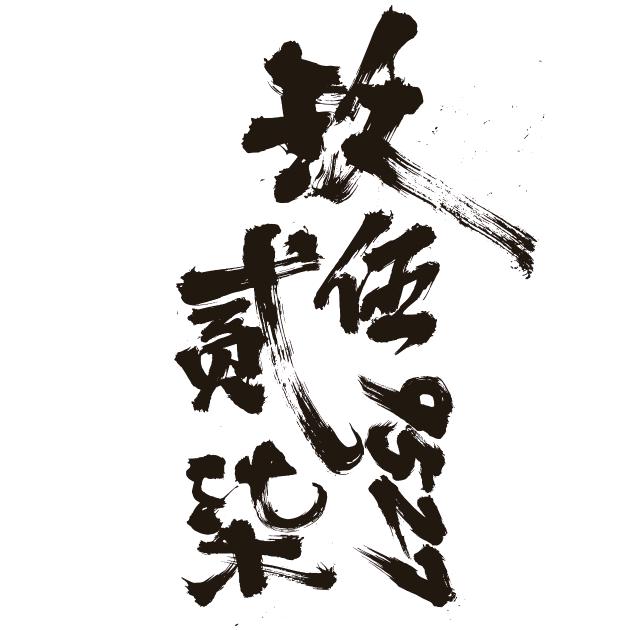 玖伍贰柒
9527